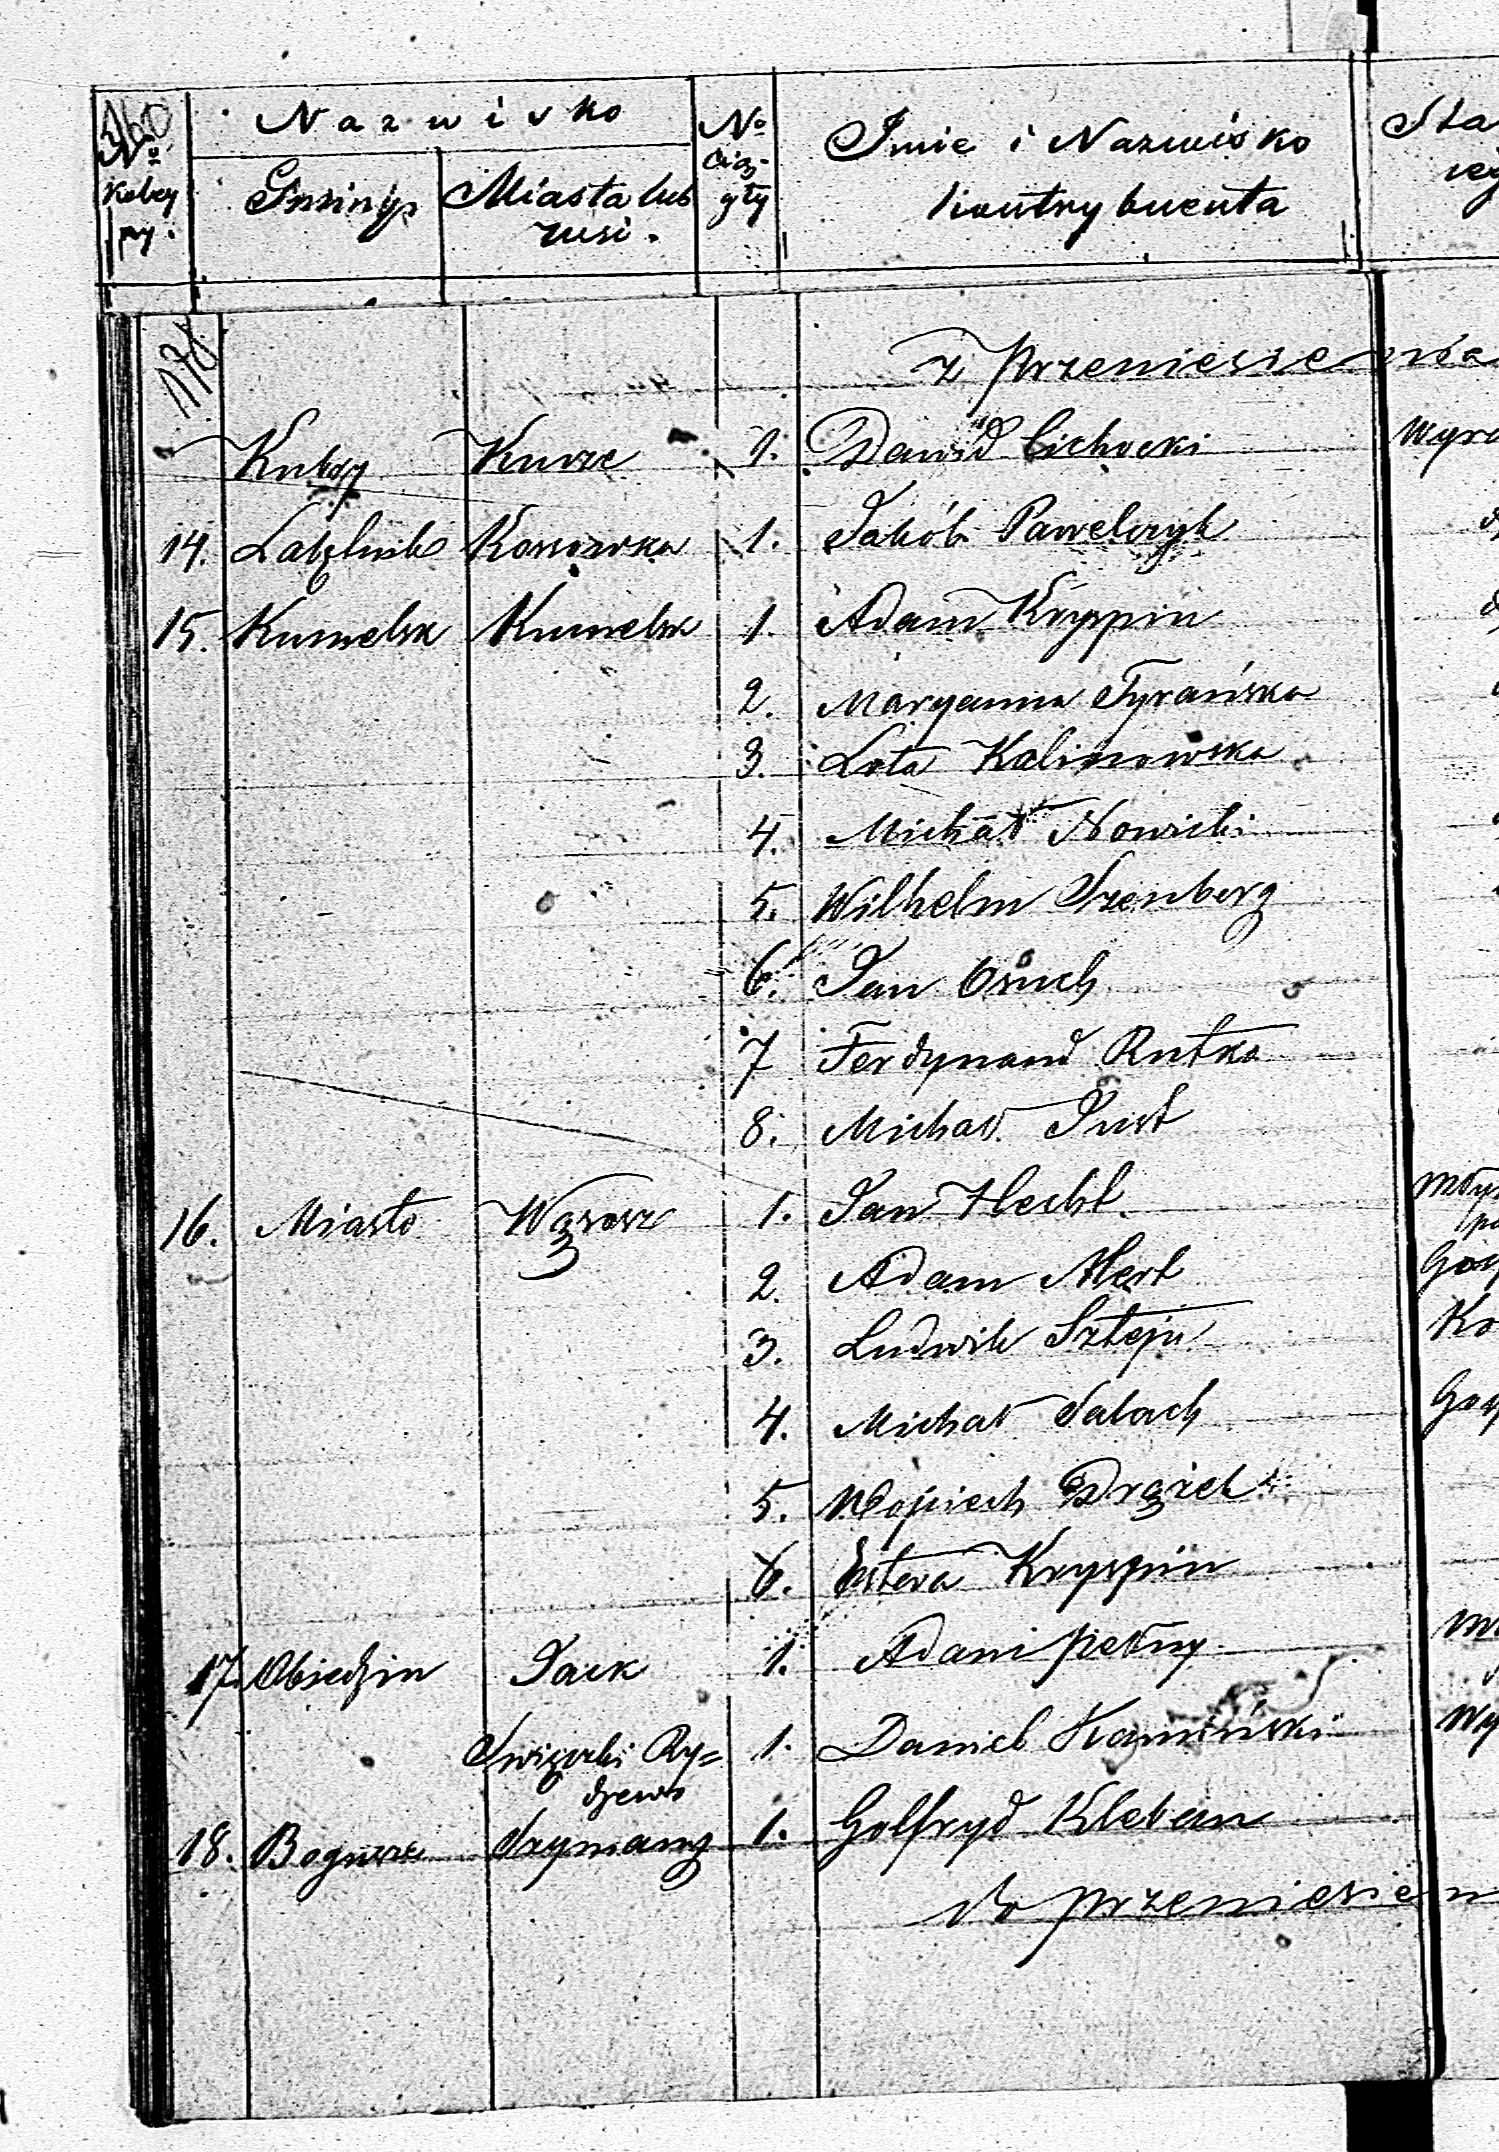 360
Nazwisko
No kolej ny.
Gminy
Miasta lub wsi.
No ciągły
Imie i Nazwisko kontrybuenta
Sta
178
z przeniesienia
Kubry Kurze 1. Dawid Cichocki Wyro
14. Kossowka 1. Jakób Pawelczyk
15. Kumelsk Kumelsk 1. Adam Kryspin
2. Maryanna Tyrańska
3. Lota Kalinowska
4. Michał Nowicki
5. Wilhelm Szenberg
6. Jan Osuch
7 Ferdynand Rutka
8. Michał Just
16. Miasto Wąsosz 1. Jan Hecht
2. Adam Mert
3. Ludwik Sztejn Ko
4. Michał Salach
5. Wojciech Drążek
6. Estera Kryspin
17. Obiedzin Jack 1. Adam
Święcki Ry=
dzewo
1. Daniel Kamiński Wy
18. Bogusze Szymany 1. Golfryd Kleban
do przeniesien